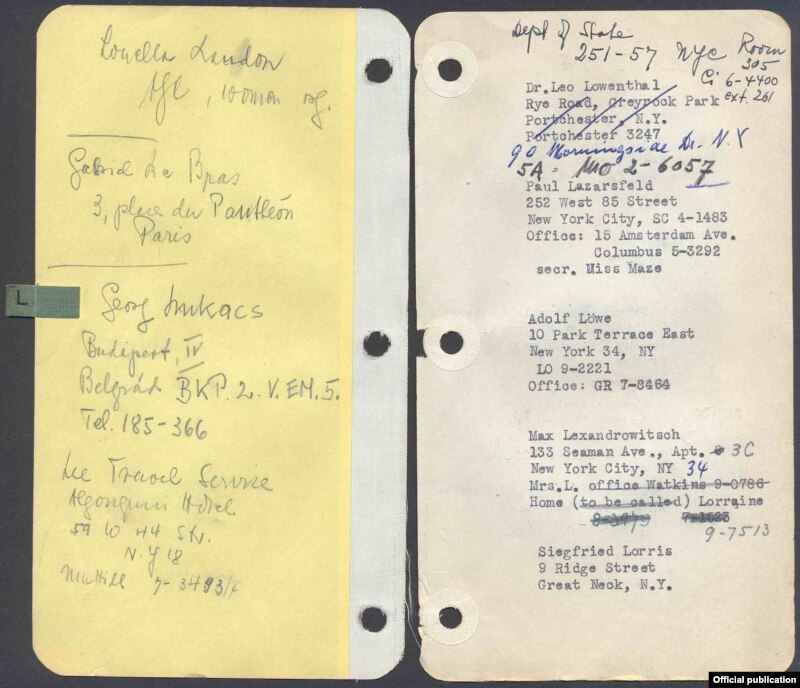 Louella Landon
AFL, women org.
Gabriel Le Bras
3, place du Panthéon
Paris
L
Georg Lukacs
Budapest, IV
Belgrád BKP. 2. V. EM. 5.
Tel. 185-366
Lee Travel Service
Algonquin Hotel
59 W 44 Str.
N.Y 18
MuHill 7-3493/4
Dept of State
251-57 NYC Room
305
Ci 6-4400
ext. 261
Dr. Leo Lowenthal
Rye Road, Greyrock Park
Portchester, N.Y.
Portchester 3247
90 Morningside Dr. N.Y
5A - MO 2-6057
Paul Lazarsfeld
252 West 85 Street
New York City, SC 4-1483
Office: 15 Amsterdam Ave.
Columbus 5-3292
secr. Miss Maze
Adolf Löwe
10 Park Terrace East
New York 34, NY
LO 9-2221
Office: GR 7-8464
Max Lexandrowitsch
133 Seaman Ave., Apt. 3C
New York City, NY 34
Mrs.L. office Watkins 9-0786
Home (to be called) Lorraine
7-1523
9-7513
Siegfried Lorris
9 Ridge Street
Great Neck, N.Y.
Official publication